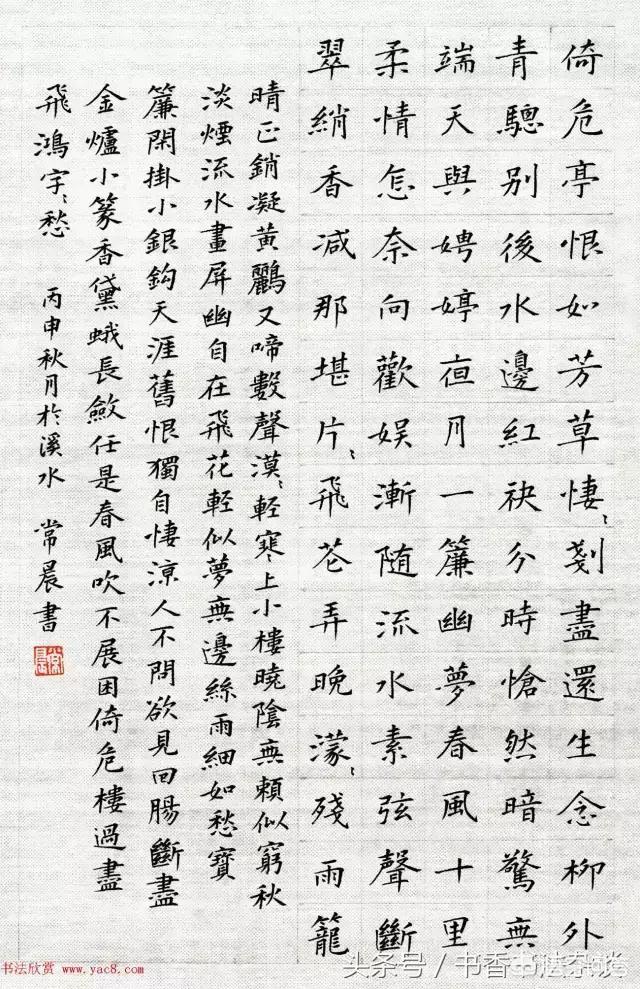 倚危亭恨如芳草悽〻剗盡還生念柳外
青驄別後水邊紅袂分時愴然暗驚無
端天與娉婷夜月一簾幽夢春風十里
柔情怎奈向歡娛漸隨流水素弦聲斷
翠綃香減那堪片〻飛花弄晚濛〻殘雨籠
晴正銷凝黃鸝又啼數聲漠〻輕寒上小樓曉陰無賴似窮秋
淡煙流水畫屏幽自在飛花輕似夢無邊絲雨細如愁寶
簾閑掛小銀鉤天涯舊恨獨自悽涼人不問欲見回腸斷盡
金爐小篆香黛蛾長斂任是春風吹不展困倚危樓過盡
飛鴻字〻愁 丙申秋月於溪水 常晨書
常晨
书法欣赏 www.yac8.com
头条号/书香